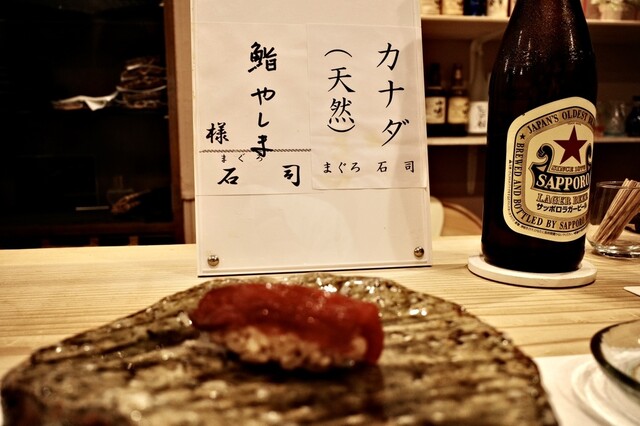 カナダ
(天然)
まぐろ 石司
鮨 やしま
様
まぐろ
石司
JAPAN'S OLDEST BRAND
SINCE 1876
SAPPORO
LAGER BEER
サッポロラガービール
BREWED AND BOTTLED BY SAPPORO